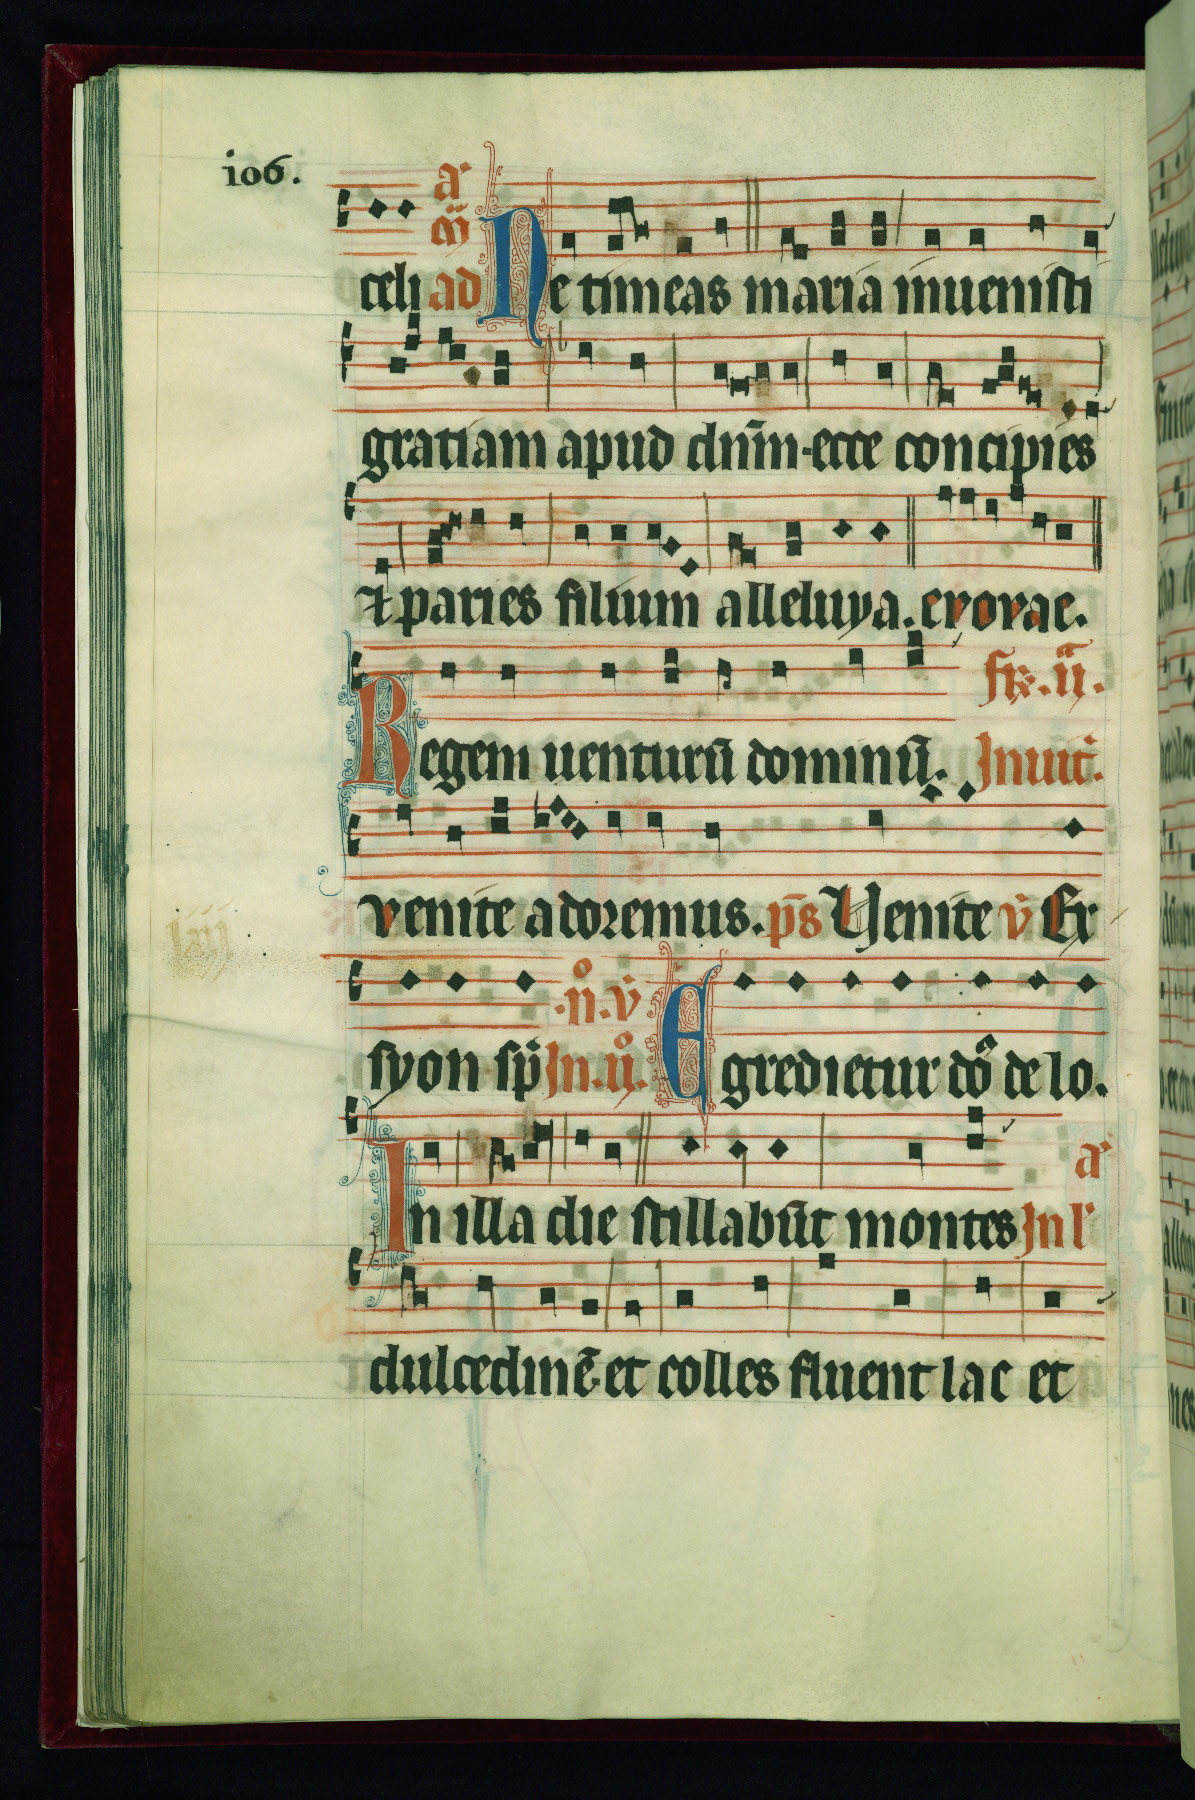 106.
celi ad Ne timeas maria inuenisti
gratiam apud dn̄m·ecce concipies
et paries filium alleluya. evovae.
fr̄. ij.ᵃ
Regem uenturū dominū. Inuit̄.
venite adoremus. p̄s Venite v̄ Ex
.n. v̄
syon sp̄ In. ij.° Egredietur dō de lo.
In illa die stillabūt montes In l'
dulcedinē et colles fluent lac et